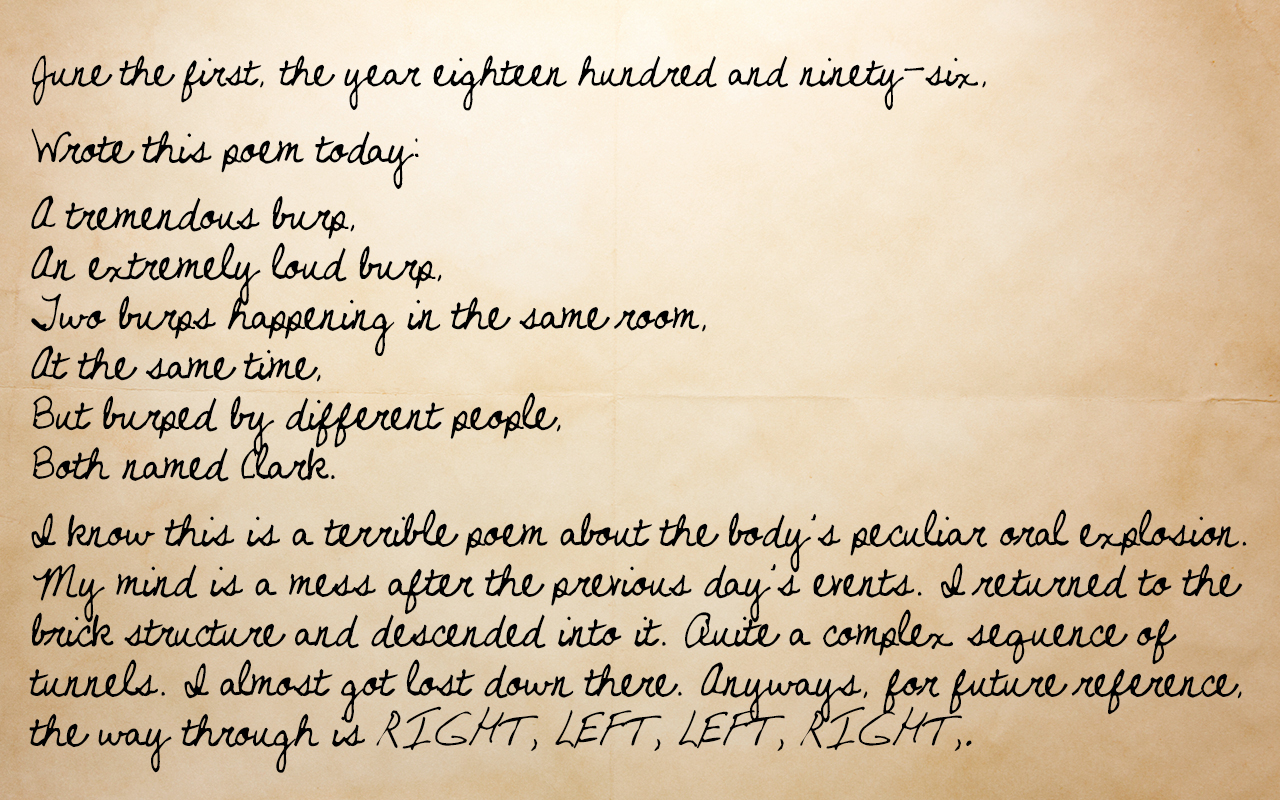 June the first, the year eighteen hundred and ninety-six,
Wrote this poem today:
A tremendous burp,
An extremely loud burp,
Two burps happening in the same room,
At the same time,
But burped by different people,
Both named Clark.
I know this is a terrible poem about the body's peculiar oral explosion.
My mind is a mess after the previous day's events. I returned to the
brick structure and descended into it. Quite a complex sequence of
tunnels. I almost got lost down there. Anyways, for future reference,
the way through is RIGHT, LEFT, LEFT, RIGHT,.